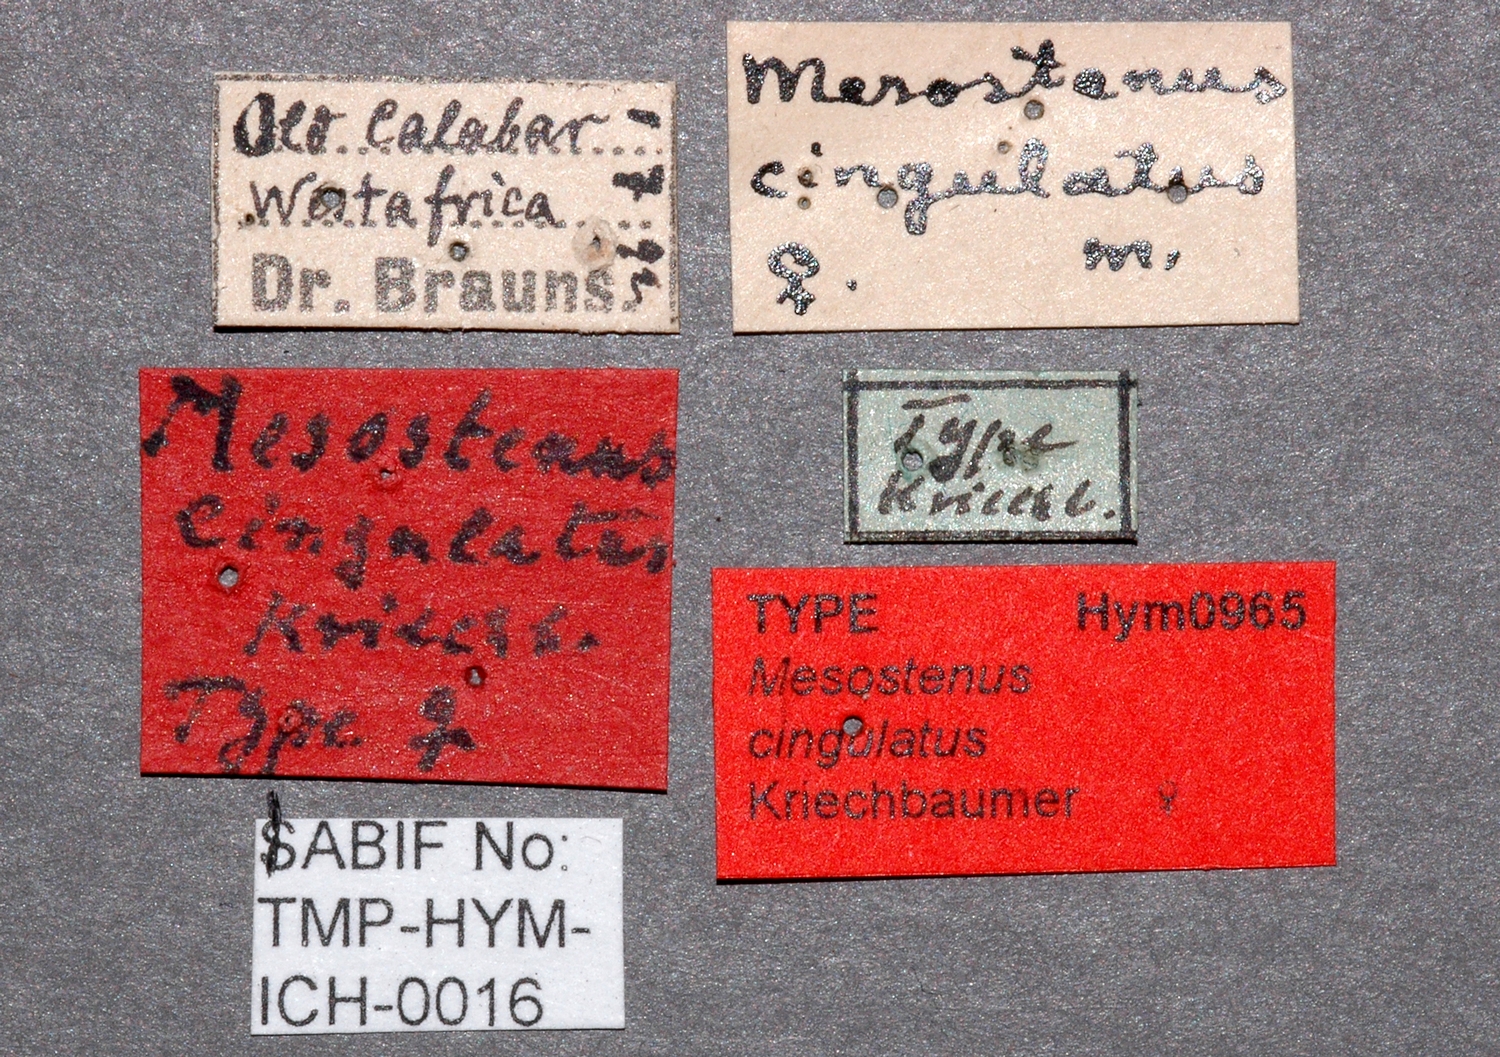 Old Calabar
Westafrica
Dr. Brauns.
Mesostenus
cingulatus
♀. m.
Mesostenus
cingulatus
Kriechb.
Type ♀
Type
Kriechb.
TYPE Hym0965
Mesostenus
cingulatus
Kriechbaumer ♀
SABIF No:
TMP-HYM-
ICH-0016